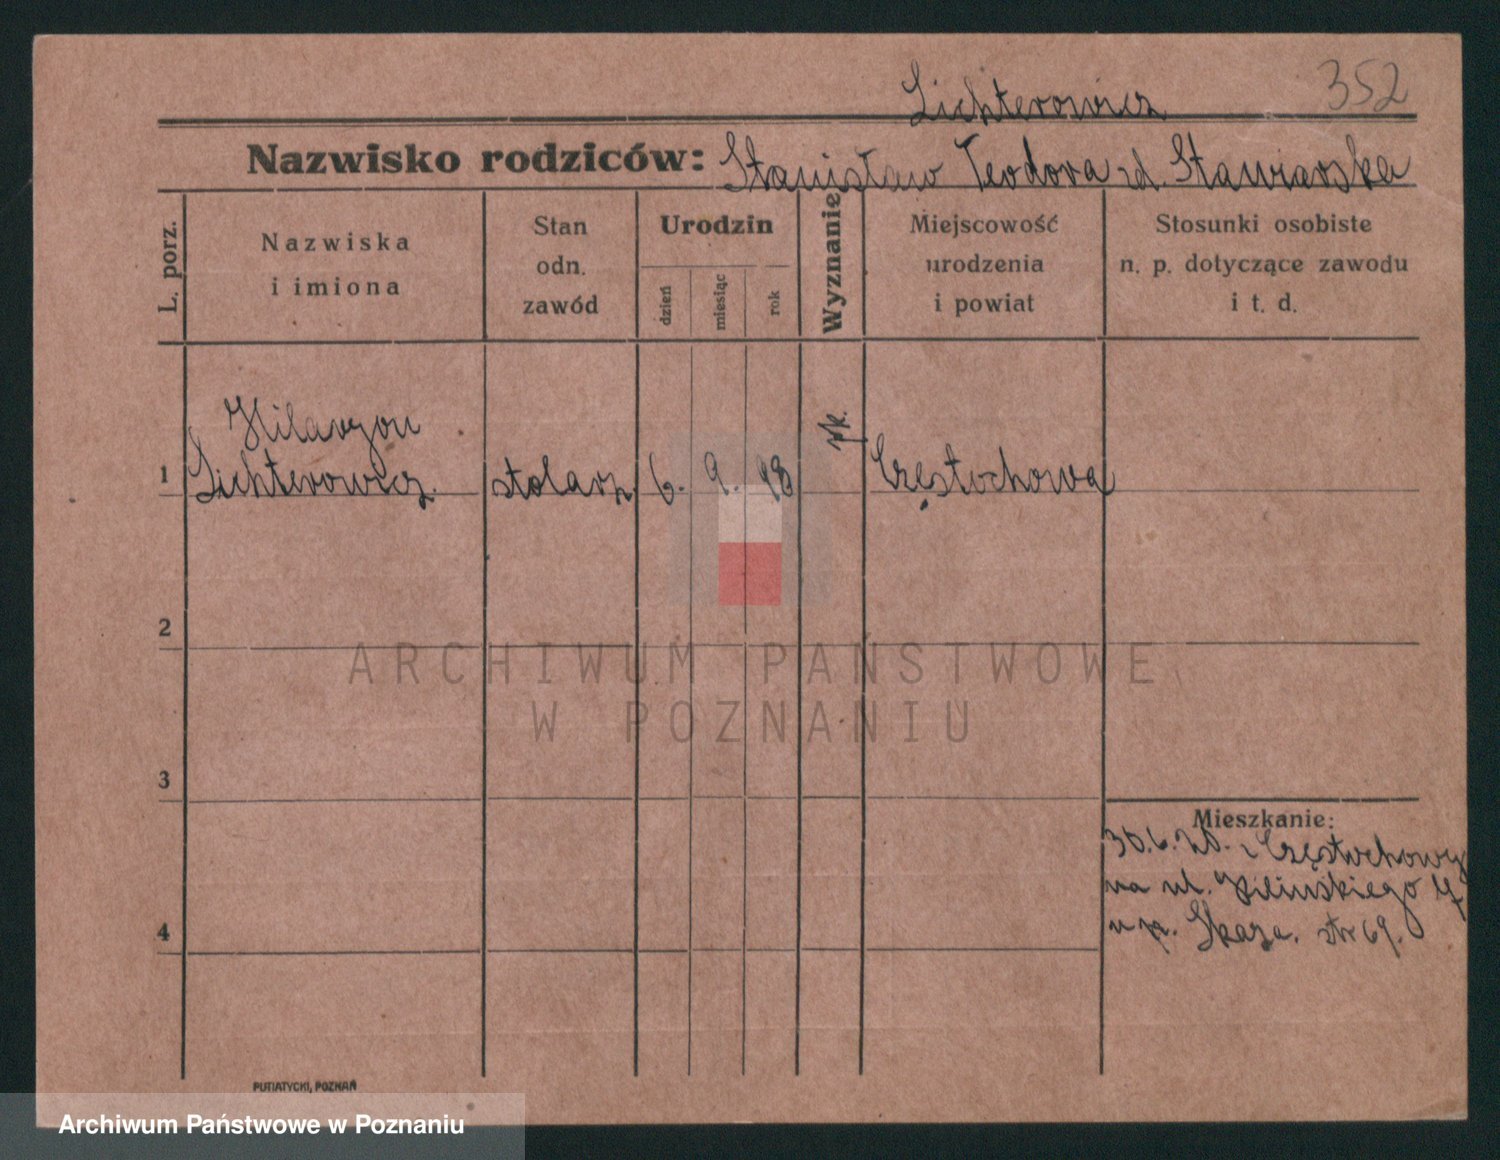 352
Lichterowicz
Nazwisko rodziców: Stanisław Teodora zd. Stawiarska
L. porz.
Nazwiska
i imiona
Stan
odn.
zawód
Urodzin
dzień
miesiąc
rok
Wyznanie
Miejscowość
urodzenia
i powiat
Stosunki osobiste
n. p. dotyczące zawodu
i t. d.
Hilaryon
1 Lichterowicz stolarz 6. 9. 98 rk. Częstochowa
2
ARCHIWUM PAŃSTWOWE
W POZNANIU
3
Mieszkanie:
30.6.20. z Częstochowy
na ul. Kilińskiego
4
u p. str 69.
PUTIATYCKI, POZNAŃ
Archiwum Państwowe w Poznaniu